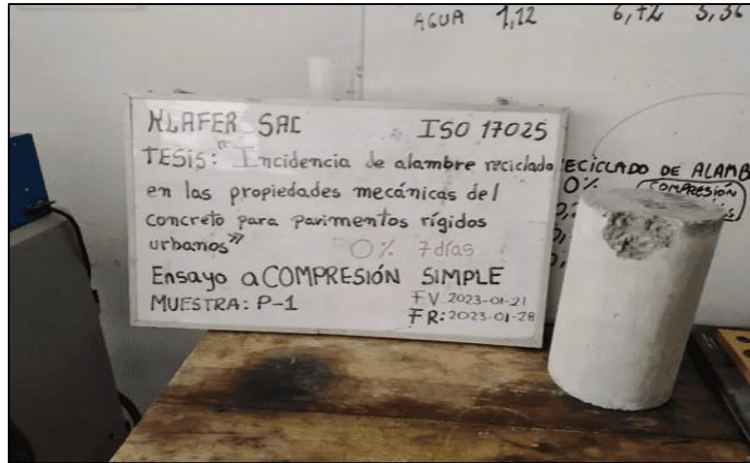 AGUA 1,12 6,72 3,36
KLAFER SAC ISO 17025
TESIS: "Incidencia de alambre reciclado
en las propiedades mecánicas del
concreto para pavimentos rígidos
urbanos"
0% 7 días
Ensayo a COMPRESIÓN SIMPLE
MUESTRA: P-1
FV: 2023-01-21
FR: 2023-01-28
ECICLADO DE ALAMB
0%
COMPRESIÓN